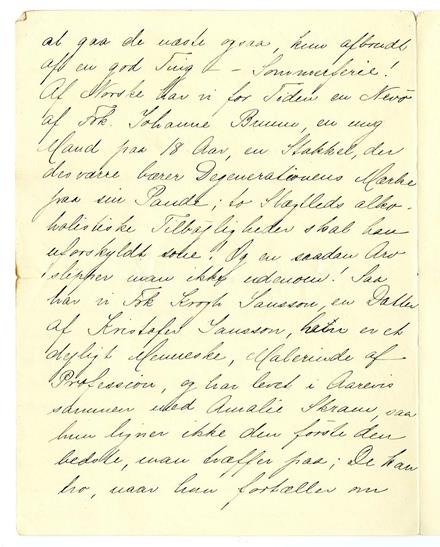 at gaa de næste ogsaa, kun afbrudt
af en god Ting – – Sommerferie!
Af Norske har vi for Tiden en Nevö
af Frk Johanne Bruun, en ung
Mand paa 18 Aar, en Stakkel, der
desværre bærer Degenerationens Mærke
paa sin Pande; to Slægtleds alko-
holistiske Tilbøjligheder skal han
uforskyldt sone! Og en saadan Arv
slipper man ikke udenom! Saa
har vi Frk Krogh Jansson, en Datter
af Kristofer Jansson, hun er et
dejligt Menneske, Malerinde af
Profession, og har levet i Aarevis
sammen med Amalie Skram, saa
hun ligner ikke den første den
bedste, man træffer paa; De kan
tro, naar hun fortæller om